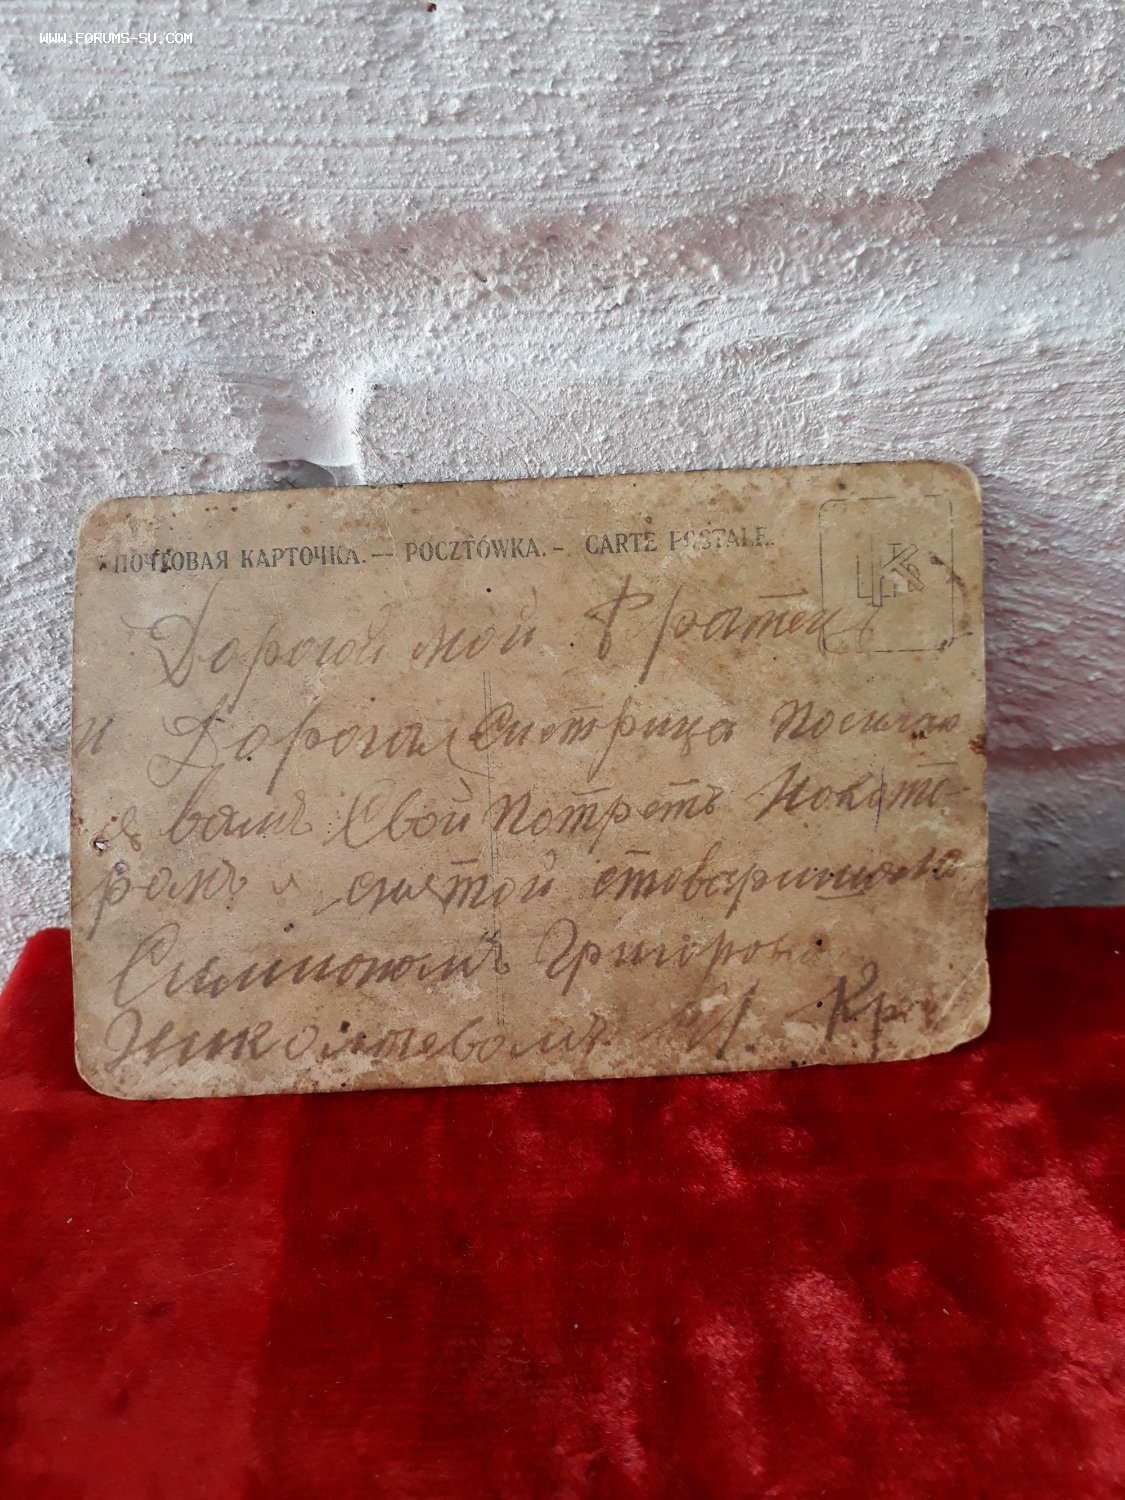 WWW.FORUMS-SU.COM
ПОЧТОВАЯ КАРТОЧКА. — POCZTÓWKA. – CARTE POSTALE.
Дорогой мой Братец
и Дорогая Систрица Посилаю
я вамъ Свой Потретъ Hокато-
ромъ я снятой стоварищама
Григорова
Николаевомъ.